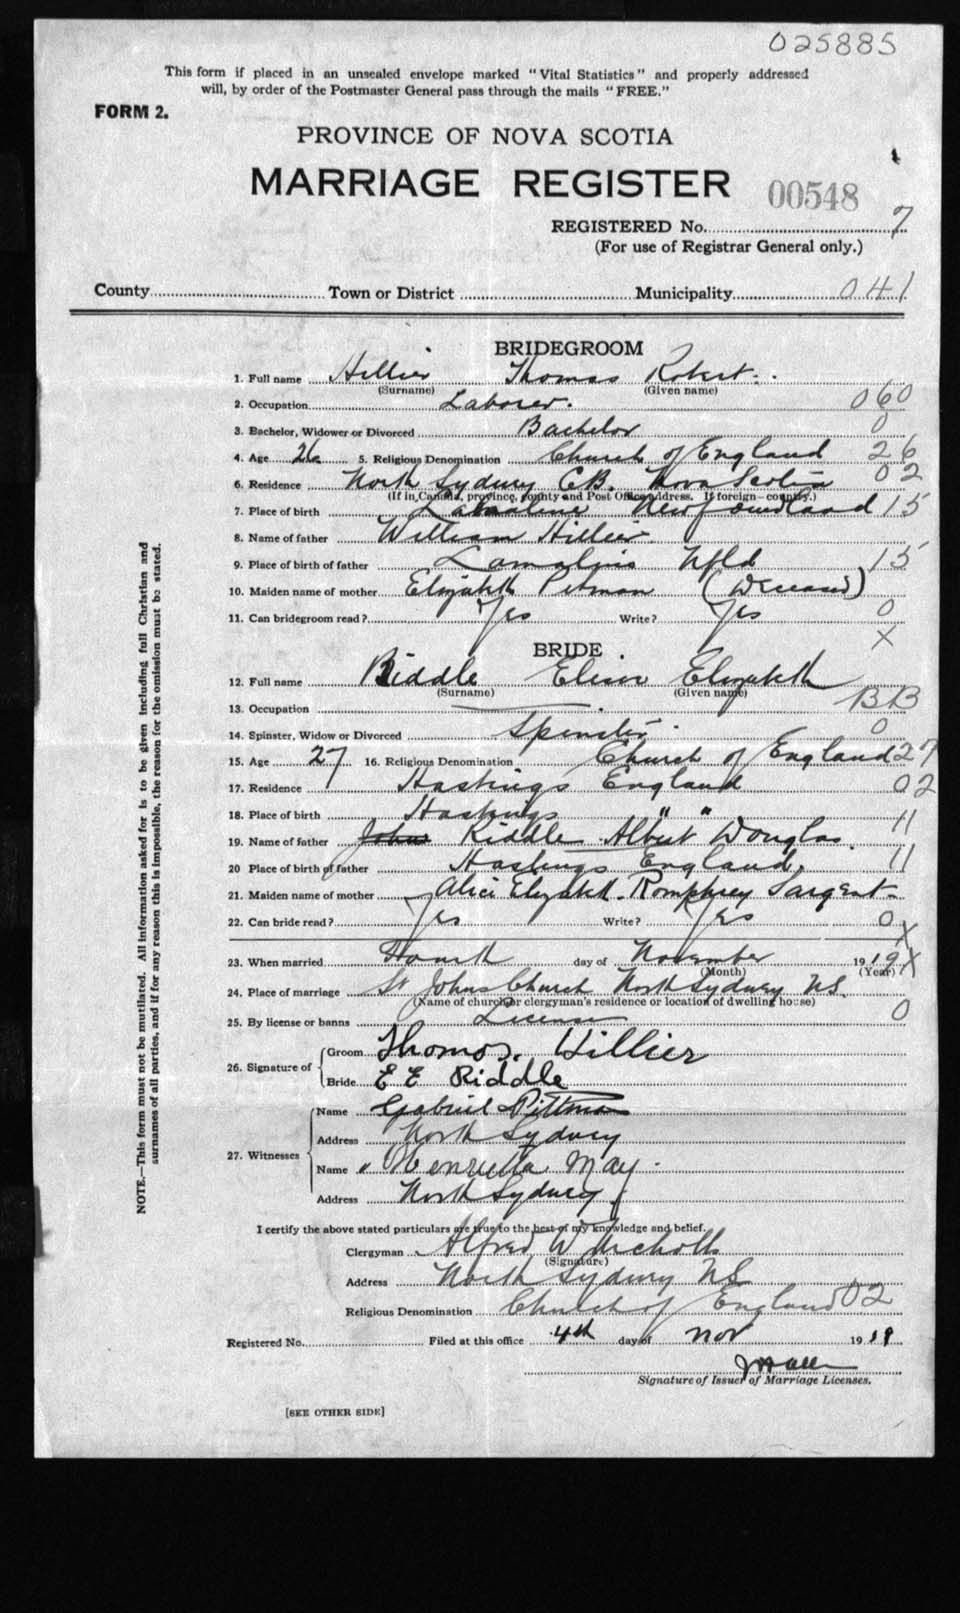 025885
This form if placed in an unsealed envelope marked "Vital Statistics" and properly addressed
will, by order of the Postmaster General pass through the mails "FREE."
FORM 2.
PROVINCE OF NOVA SCOTIA
MARRIAGE REGISTER 00548
REGISTERED No. 7
(For use of Registrar General only.)
County Town or District Municipality 041
BRIDEGROOM
1. Full name Hillier Thomas Robert
(Surname) (Given name)
2. Occupation Laborer. 060
3. Bachelor, Widower or Divorced Bachelor 0
4. Age 26 5. Religious Denomination Church of England 26
6. Residence North Sydney C.B. Nova Scotia 02
(If in Canada, province, county and Post Office address. If foreign—country.)
7. Place of birth Lamaline Newfoundland 15
8. Name of father William Hillier
9. Place of birth of father Lamaline Nfld 15
10. Maiden name of mother Elizabeth Pitman (Deceased)
11. Can bridegroom read? Yes Write? Yes 0
X
BRIDE
12. Full name Riddle Elinor Elizabeth
(Surname) (Given name)
13. Occupation BB
14. Spinster, Widow or Divorced Spinster 0
15. Age 27 16. Religious Denomination Church of England 27
17. Residence Hastings England 02
18. Place of birth Hastings " " 11
19. Name of father John Riddle Albert Douglas.
20 Place of birth of father Hastings England, 11
21. Maiden name of mother Alice Elizabeth Romphrey Sargent
22. Can bride read? Yes Write? Yes 0
X
23. When married Fourth day of November 1919 X
(Month) (Year)
24. Place of marriage St Johns Church North Sydney N.S.
(Name of church or clergyman's residence or location of dwelling house)
25. By license or banns License 0
26. Signature of Groom Thomas. Hillier
Bride E E Riddle
27. Witnesses Name Gabriel Pittman
Address North Sydney
Name " Henrietta May
Address North Sydney
I certify the above stated particulars are true to the best of my knowledge and belief.
Clergyman Alfred W Nicholls
(Signature)
Address North Sydney NS
Religious Denomination Church of England 02
Registered No. Filed at this office 4th day of Nov 1919
Signature of Issuer of Marriage Licenses.
[SEE OTHER SIDE]
NOTE.—This form must not be mutilated. All information asked for is to be given including full Christian and
surnames of all parties, and if for any reason this is impossible, the reason for the omission must be stated.